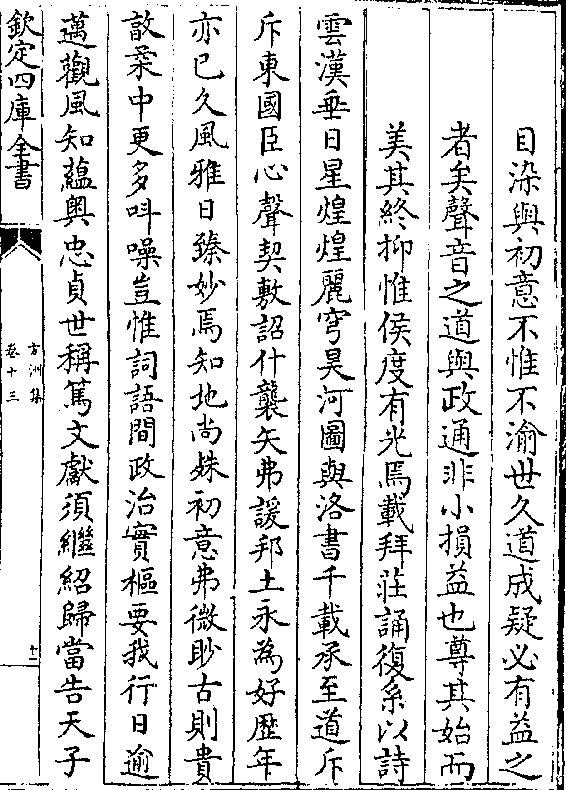 目染與初意不惟不渝世久道成疑必有益之
者矣聲音之道與政通非小損益也尊其始而
美其終抑惟侯度有光焉載拜莊誦復系以詩
雲漢垂日星煌煌麗穹昊河圖與洛書千載承至道斥
斥東國臣心聲契敷詔什襲矢弗諼邦土永為好歴年
亦已久風雅日臻妙焉知地尚姝初意弗微眇古則貴
敦柔中更多呌噪豈惟詞語間政治實樞要我行日逾
邁觀風知蘊奥忠貞世稱篤文獻須繼紹歸當告天子
欽定四庫全書
方洲集
卷十三
十二